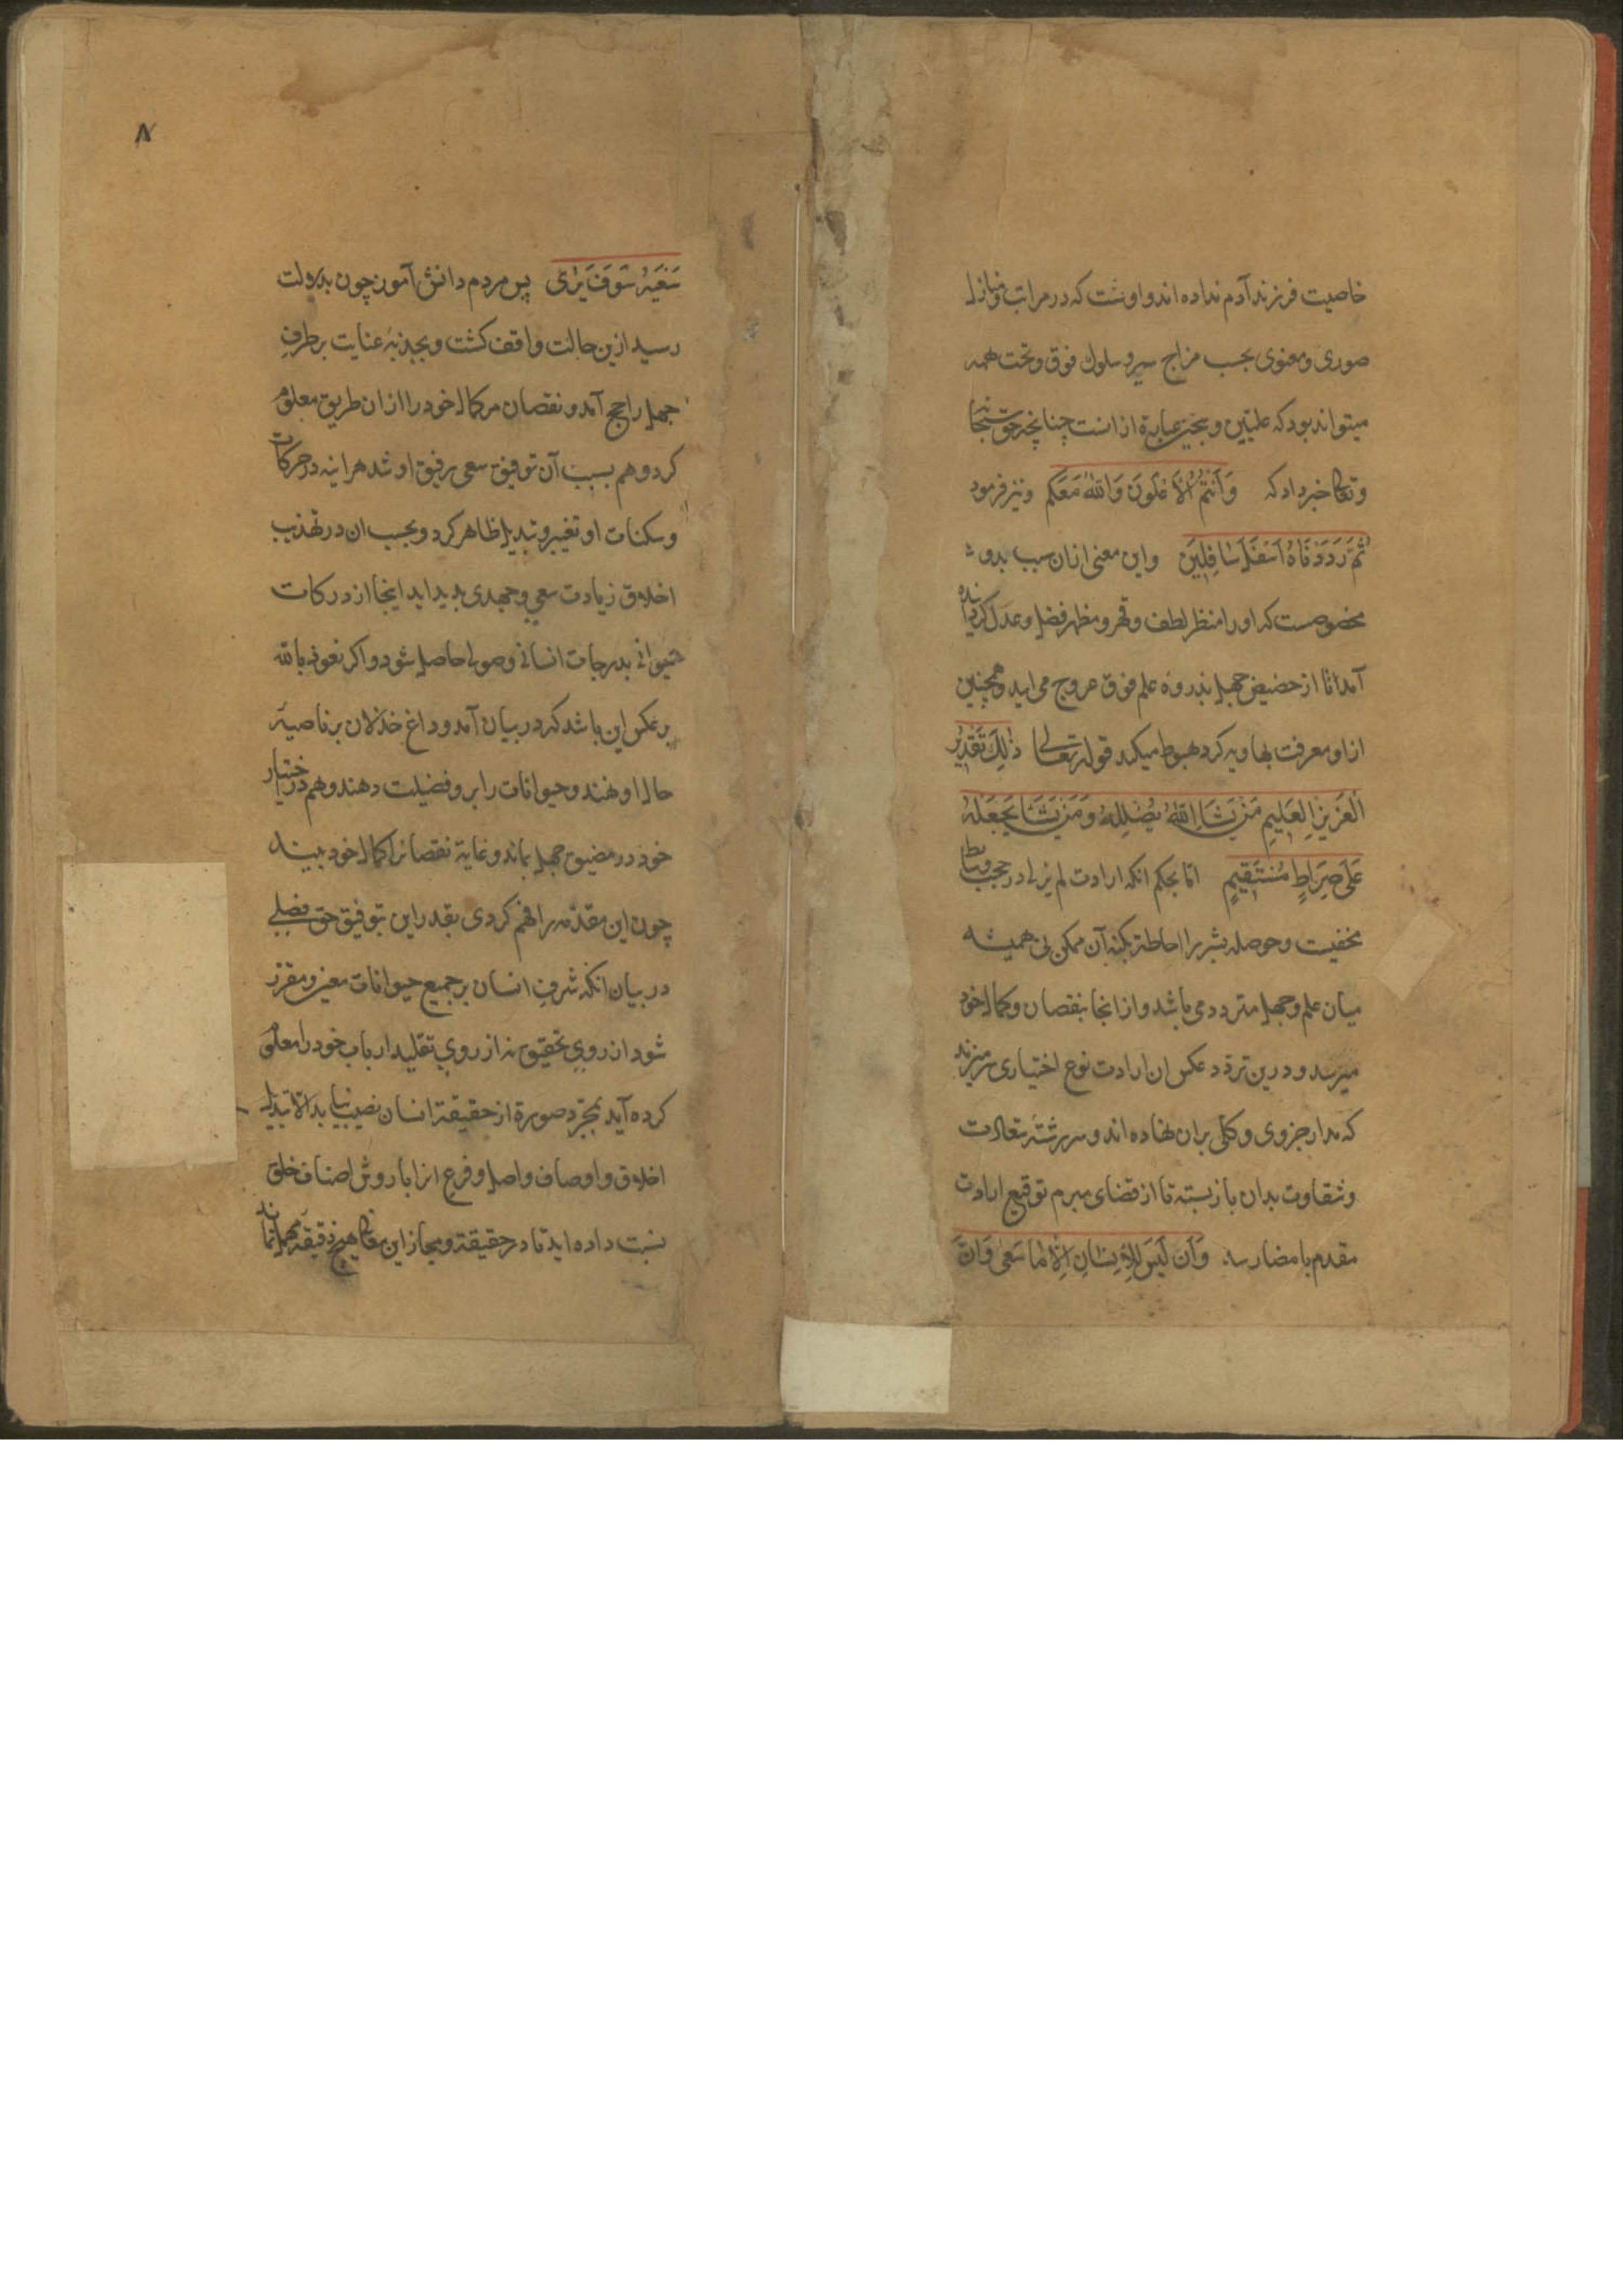 خاصیت فرزند آدم نداده اند و اوست که در مراتب و منازل
صوری و معنوی بحسب مزاج سیر و سلوک فوق و تحت همه
میتواند بود که علیین و سجین عبارة از انست چنانچه حق سبحانه
و تعالی خبر داد که وَاَنْتُمُ الْاَعْلَوْنَ وَاللّٰهُ مَعَكُمْ و نیز فرمود
ثُمَّ رَدَدْنَاهُ اَسْفَلَ سَافِلِينَ و این معنی ازان سبب بدو
مخصوصست که او را منظر لطف و قهر و مظهر فضل و عدل گردانیده
آمد تا از حضیض جهل بذروه علم فوق عروج می اید و همچنین
از اوج معرفت بهاویه کرد هبوط میکند قوله تعالی ذٰلِكَ تَقْدِيرُ
الْعَزِيزِ الْعَلِيمِ مَنْ يَشَاِ اللّٰهُ يُضْلِلْهُ وَمَنْ يَشَاْ يَجْعَلْهُ
عَلَى صِرَاطٍ مُسْتَقِيمٍ امّا بحکم انکه ارادت لم یزلی در حجب
مخفیست و حوصله بشر را احاطت بکنه آن ممکن نی همیشه
میان علم و جهل متردد می باشد و از انجا بنقصان و کمال خود
میرسد و درین تردد عکس ان ارادت نوع اختیاری سر میزند
که مدار جزوی و کلی بران نهاده اند و سر رشته سعادت
و شقاوت بدان باز بسته تا از قضای مبرم توقیع ارادت
مقدم بامضا رسد وَاَنْ لَيْسَ لِلْاِنْسَانِ اِلَّا مَا سَعٰى وَاَنَّ
۸
سَعْيَهُ سَوْفَ يُرٰى پس مردم دانش آموز چون بدولت
رسید ازین حالت واقف کشت و بجذبه عنایت بر طرفِ
جهل راجح آمد و نقصان مر کمال خود را ازان طریق معلوم
کرد و هم بسبب آن توفیق سعی رفیق او شد هراینه در حرکات
و سکنات او تغییر و تبدیل ظاهر کرد و بحسب ان در تهذیب
اخلاق زیادت سعی و جهدی پدید اید اینجا از درکات
حیوانی بدرجات انسانی وصول حاصل شود و اکر نعوذ بالله
برعکس این باشد که در بیان آمد و داغ خذلان بر ناصیهٔ
حال او نهند و حیوانات را برو فضیلت دهند و هم در اختیار
خود در مضیق جهل بماند و غایة نقصان را کمال خود بیند
چون این مقدمه را فهم کردی بقدر این بتوفیق حق فصلی
در بیان انکه شرفِ انسان بر جمیع حیوانات معین و مقرر
شود از روی تحقیق نه از روی تقلید ارباب خود را معلوم
کرده آید بمجرّد صورة از حقیقة انسان نصیب نیابد الا تبدیل
اخلاق و اوصاف و اصل و فرع انرا با روش اصناف خلق
نسبت داده اید تا در حقیقة و مجاز این مقال هیچ دقیقه مهمل نماند